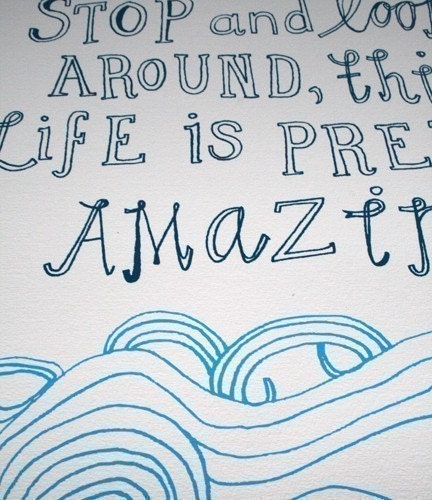 STOP and loo
AROUND, thi
LIFE is PRE
AMAZIN